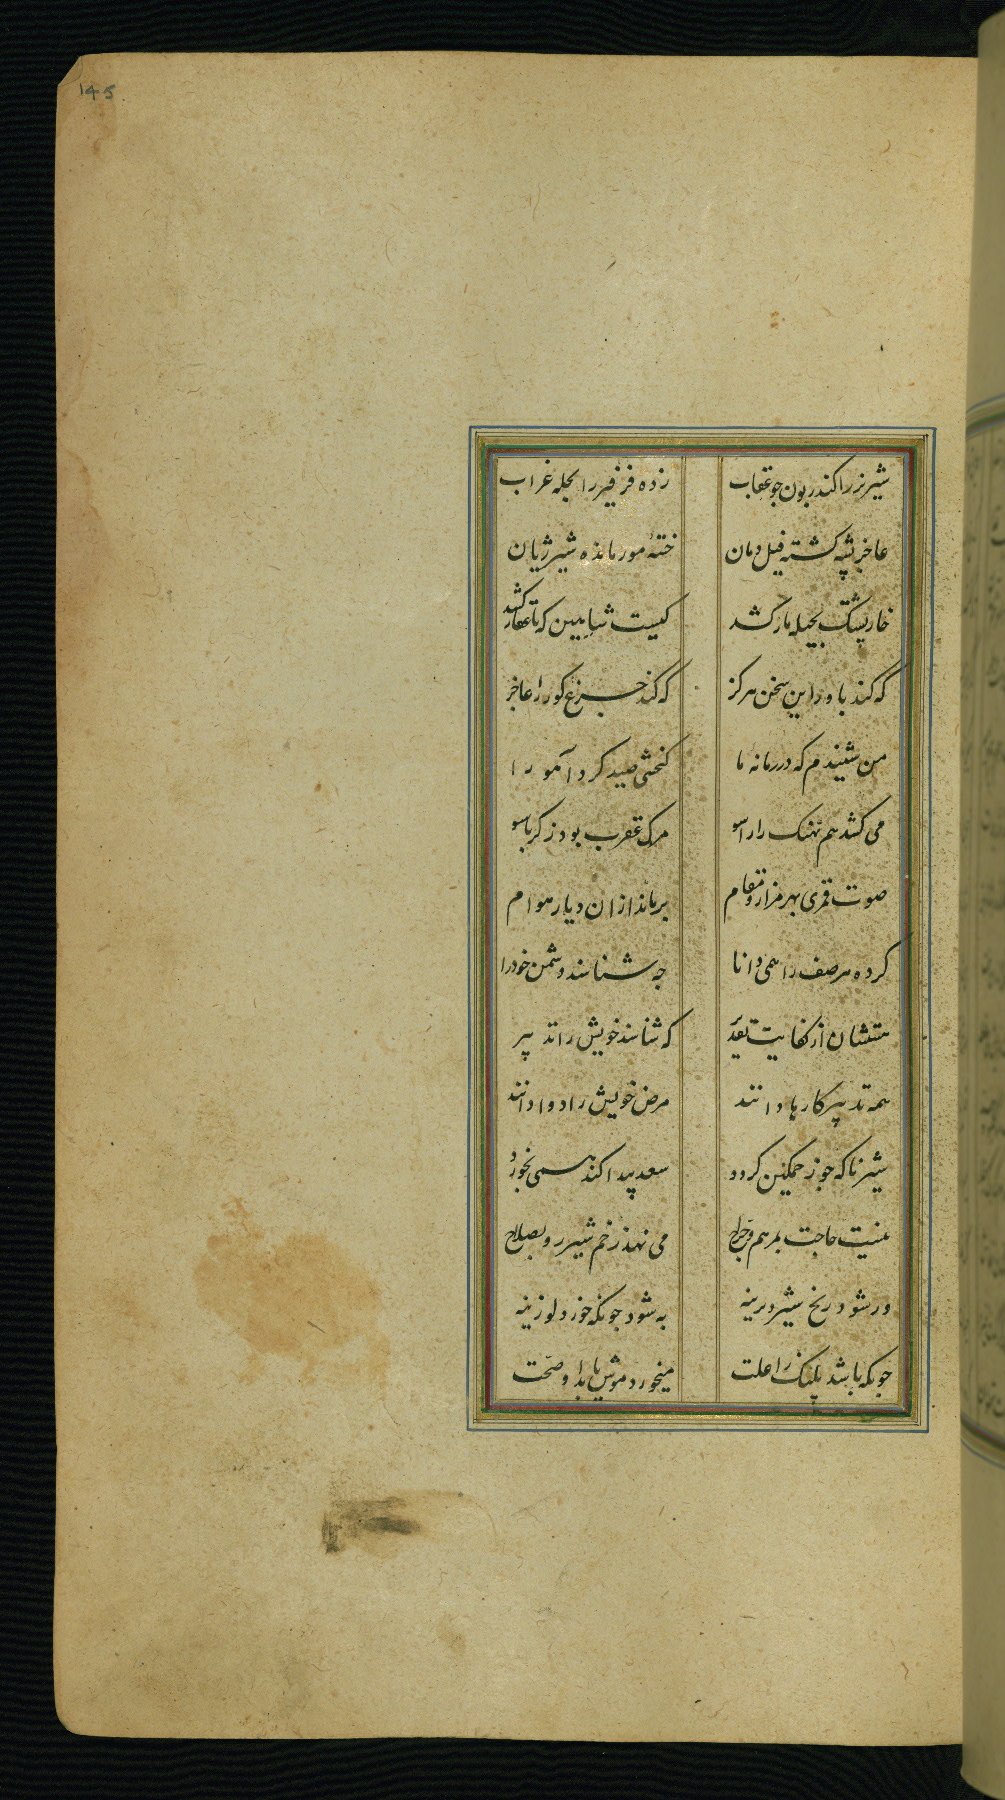 145
شیر نر را کند زبون چو عقاب
زده فرفیر را بجله غراب
عاجز پشه کشته فیل دمان
خسته مور مانده شیر ژیان
خارپشتک بحیله مار کشد
کیست شاهین که تا عقار کشد
که کند باور این سخن هرکز
که کند جرغ کور را عاجز
من شنیدم که در زمانه ما
کنجشی صید کرد آهو را
می کشد هم نهنک را راسو
مرک عقرب بود ز کرباسو
صوت قمری بهر مزار و مقام
برماند ازان دیار هوام
کرده هر صنف را همی دانا
چه شناسند دشمن خود را
هستشان از کفایت تقدیر
که شناسند خویش را تدبیر
همه تدبیر کارها دانند
مرض خویش را دوا دانند
شیر ناکه چو زخمکین کردد
سعد پیدا کند همی بخورد
نیست حاجت بمرهم و جراح
می نهد زخم شیر رو بصلاح
ور شود رنج شیر دیرینه
به شود چونکه خورد لوزینه
چونکه باشد پلنک را علت
میخورد موش یابد او صحت